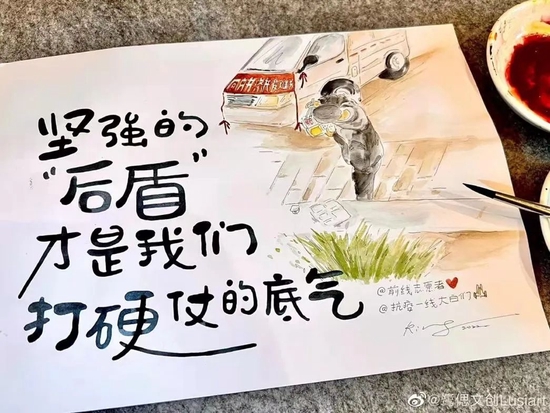 坚强的
"后盾"
才是我们
打硬仗的底气
@前线志愿者
@抗疫一线大白们
2022
@湾偶文创Lusiart